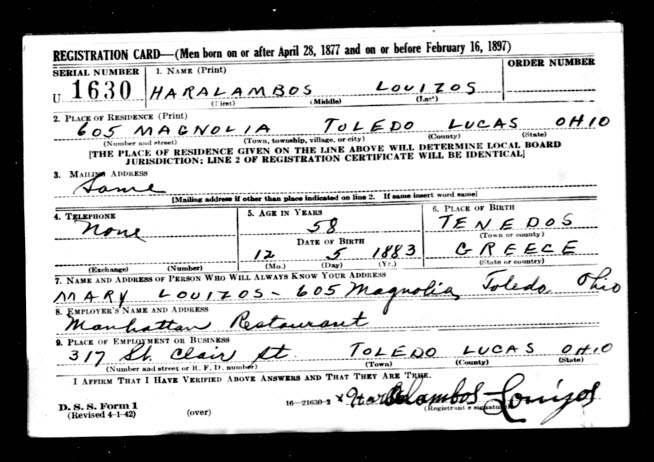 REGISTRATION CARD—(Men born on or after April 28, 1877 and on or before February 16, 1897)
SERIAL NUMBER 1. NAME (Print) ORDER NUMBER
U 1630 HARALAMBOS LOUIZOS
(First) (Middle) (Last)
2. PLACE OF RESIDENCE (Print)
605 MAGNOLIA TOLEDO LUCAS OHIO
(Number and street) (Town, township, village, or city) (County) (State)
[THE PLACE OF RESIDENCE GIVEN ON THE LINE ABOVE WILL DETERMINE LOCAL BOARD
JURISDICTION; LINE 2 OF REGISTRATION CERTIFICATE WILL BE IDENTICAL]
3. MAILING ADDRESS
Same
[Mailing address if other than place indicated on line 2. If same insert word same]
4. TELEPHONE 5. AGE IN YEARS 6. PLACE OF BIRTH
None 58 TENEDOS
DATE OF BIRTH (Town or county)
12 5 1883 GREECE
(Exchange) (Number) (Mo.) (Day) (Yr.) (State or country)
7. NAME AND ADDRESS OF PERSON WHO WILL ALWAYS KNOW YOUR ADDRESS
MARY LOUIZOS - 605 Magnolia Toledo Ohio
8. EMPLOYER'S NAME AND ADDRESS
Manhattan Restaurant
9. PLACE OF EMPLOYMENT OR BUSINESS
317 St. Clair St. TOLEDO LUCAS OHIO
(Number and street or R. F. D. number) (Town) (County) (State)
I AFFIRM THAT I HAVE VERIFIED ABOVE ANSWERS AND THAT THEY ARE TRUE.
D. S. S. Form 1 16—21630-2 x Haralambos Louizos
(Revised 4-1-42) (over) (Registrant's signature)